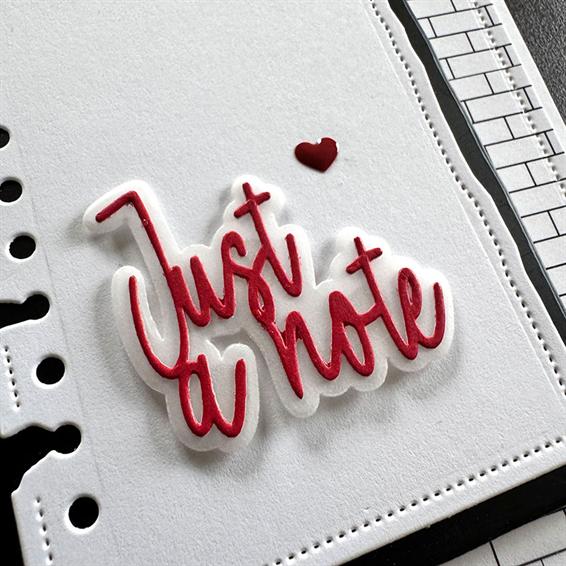 Just
a note